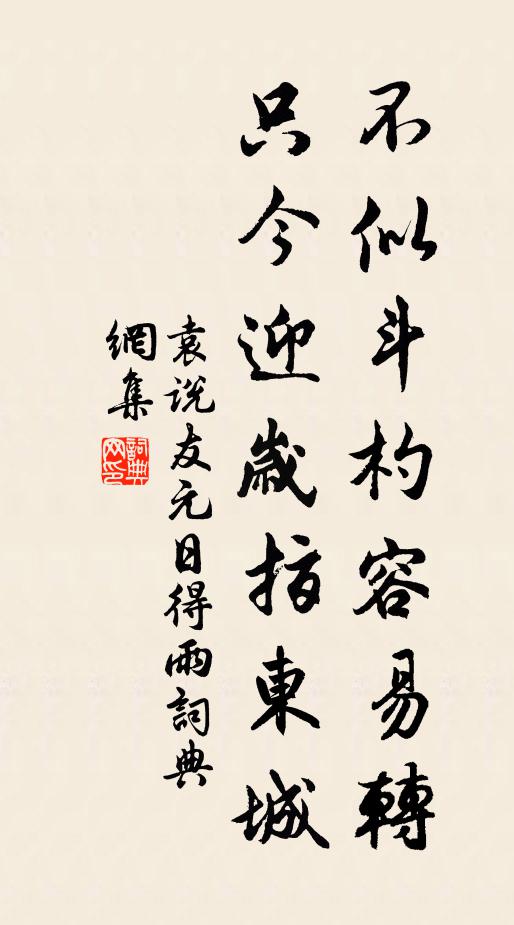 不似斗杓容易轉
只今迎歲指東城
袁說友元日得雨詞典
網集
詞典
网印